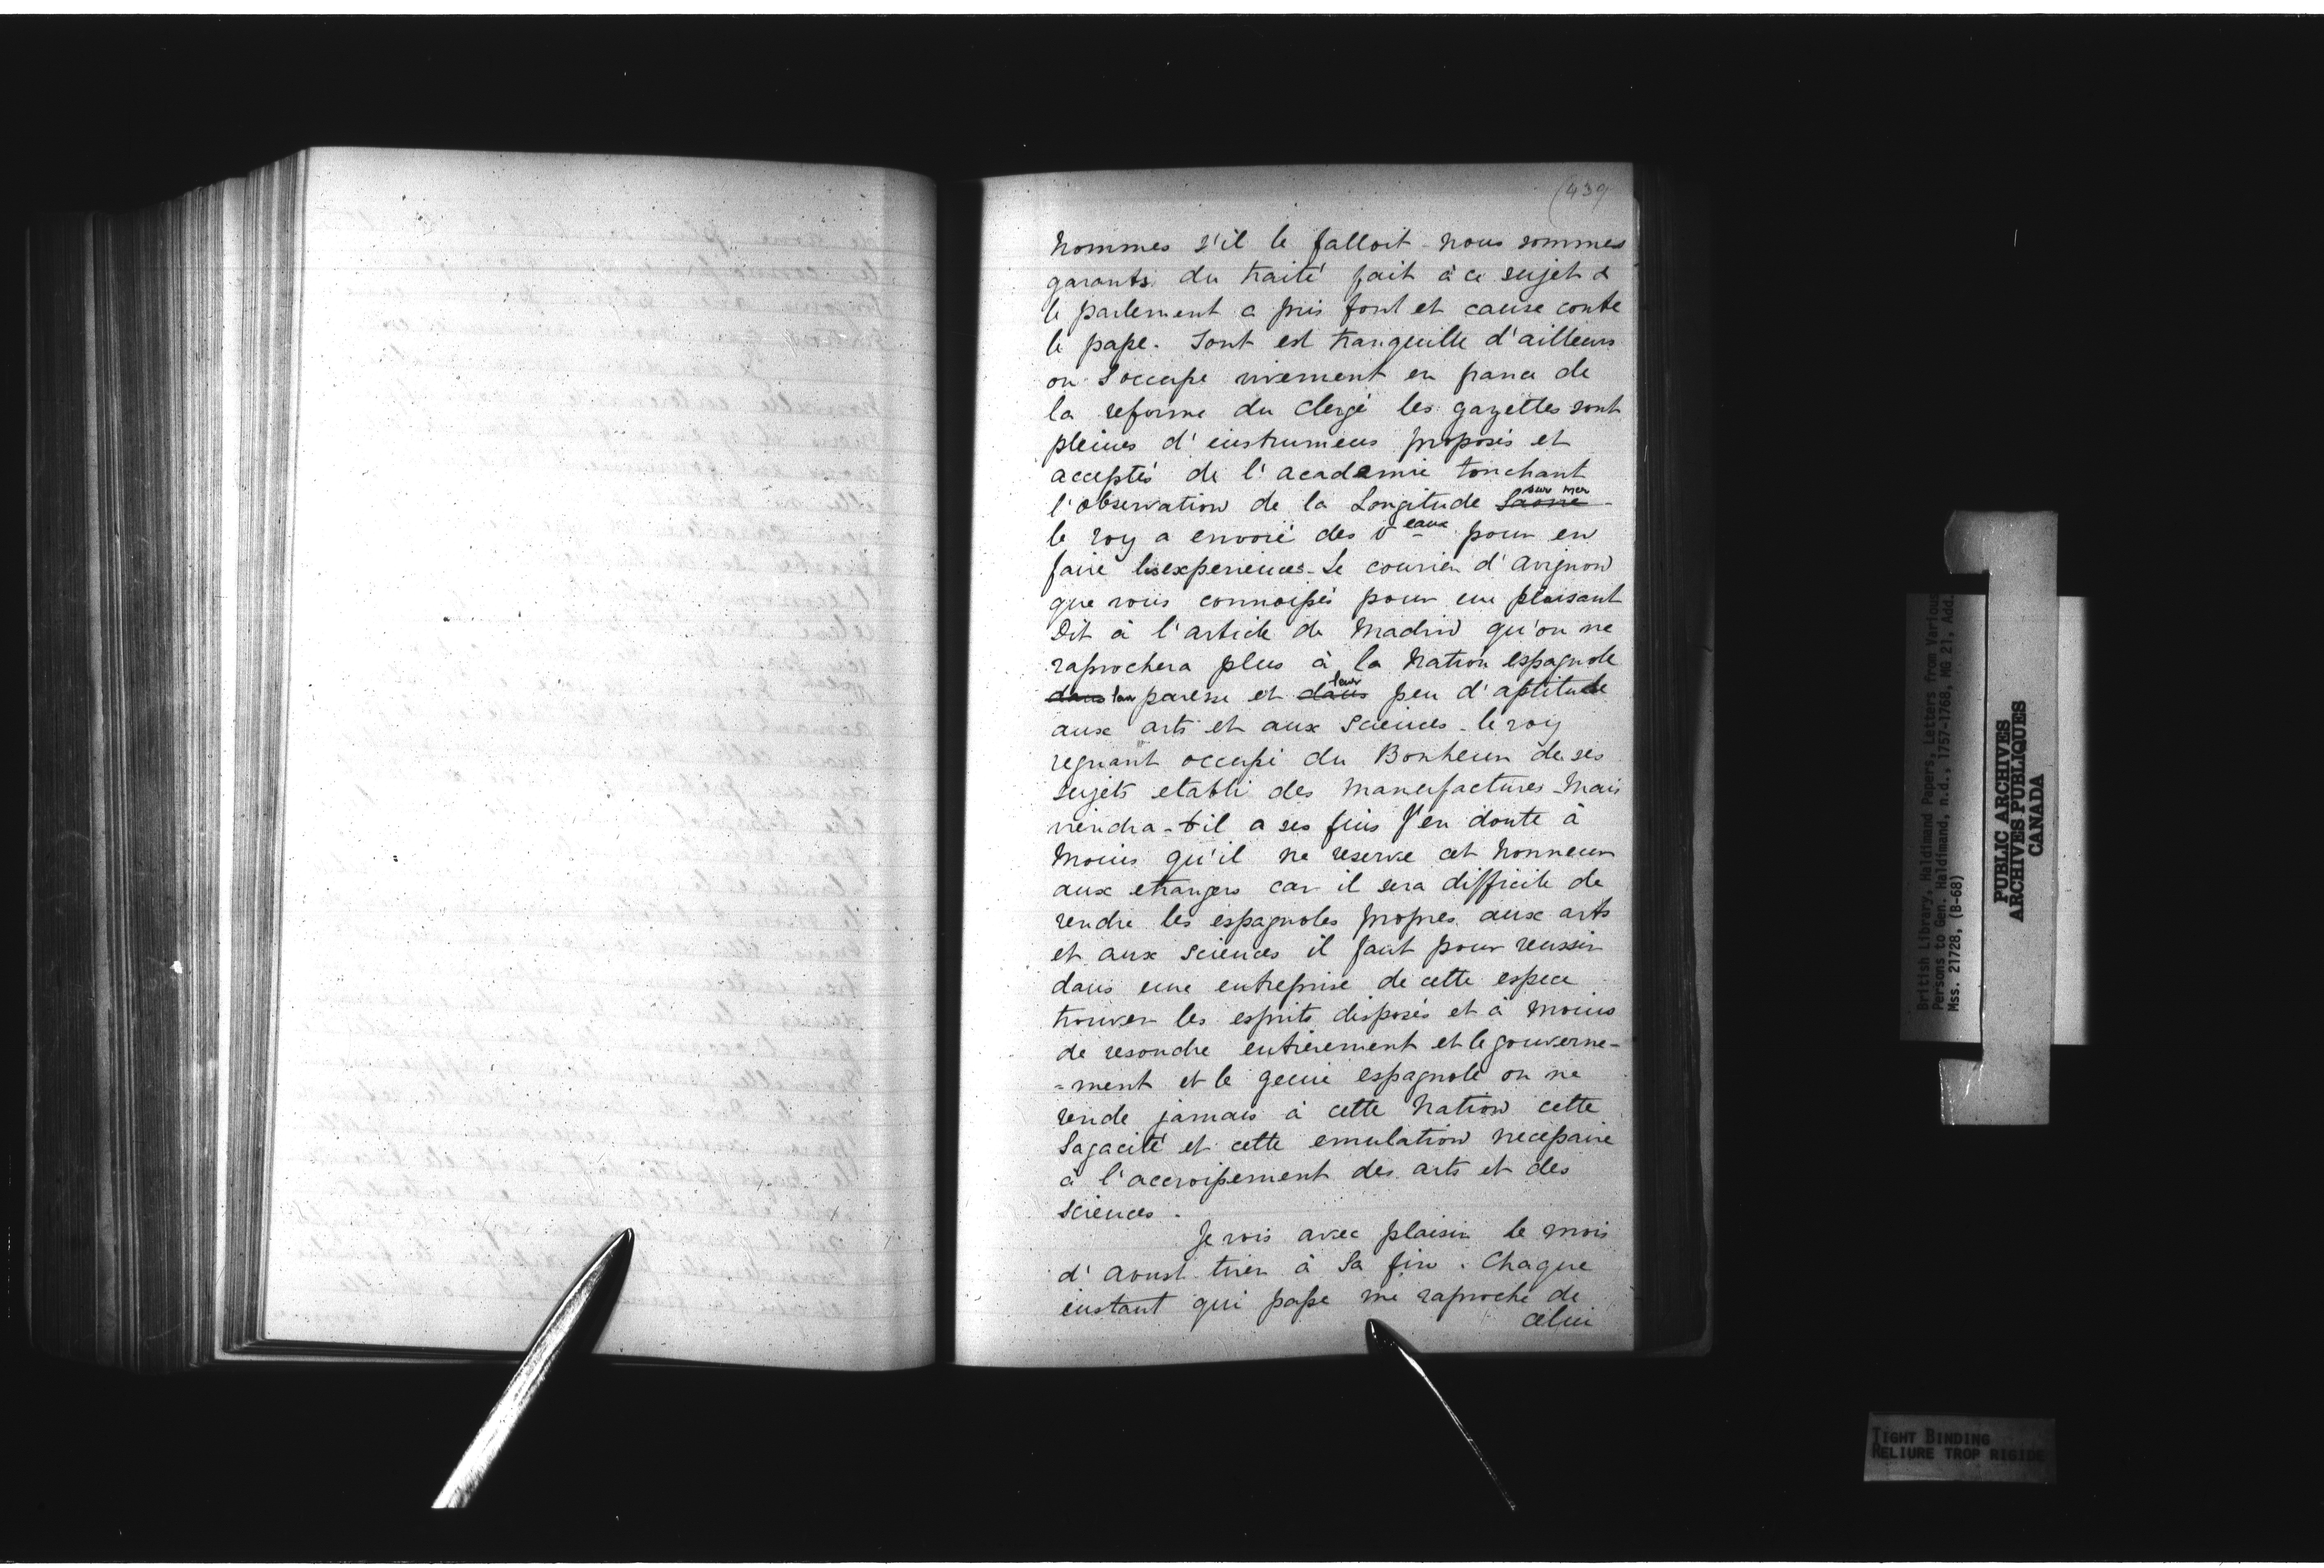 (439
hommes s'il le falloit - nous sommes
garants du traité fait à ce sujet &
le parlement a pris font et cause contre
le pape. Tout est tranquille d'ailleurs
on S'occupe vivement en france de
la reforme du Clergé les gazettes sont
pleines d'instrumens proposés et
acceptés de l'academie touchant
l'observation de la Longitude Saone sur mer -
le roy a envoié des v eaux pour en
faire les experiences - Le courier d'Avignon
que vous connoissés pour un plaisant
Dit à l'article de Madrid qu'on ne
raprochera plus à la Nation espagnole
dans leur paresse et dans leur peu d'aptitude
aux arts et aux Sciences - le roy
regnant occupé du Bonheur de ses
sujets etabli des manufactures - Mais
viendra-t-il a ses fins J'en doute à
Moins qu'il ne reserve cet honneur
aux etrangers car il sera difficile de
rendre les espagnoles propres aux arts
et aux Sciences il faut pour reussir
dans une entreprise de cette espece
trouver les esprits disposés et à Moins
de resoudre entièrement et le gouverne-
=ment et le genie espagnole on ne
rende jamais à cette Nation cette
Sagacité et cette emulation necessaire
à l'accroissement des arts et des
sciences.
Je vois avec plaisir le mois
d'Aoust tirer à Sa fin. Chaque
instant qui passe me raproche de
celui
British Library, Haldimand Papers, Letters from Various
Persons to Gen. Haldimand, n.d., 1757-1768, MG 21, Add.
Mss. 21728, (B-68)
PUBLIC ARCHIVES
ARCHIVES PUBLIQUES
CANADA
TIGHT BINDING
RELIURE TROP RIGIDE